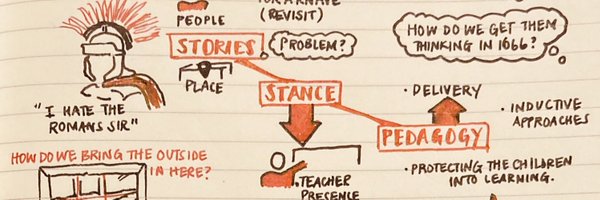 PEOPLE
(REVISIT)
STORIES
PROBLEM?
PLACE
"I HATE THE
ROMANS SIR"
HOW DO WE BRING THE OUTSIDE
IN HERE?
STANCE
TEACHER
PRESENCE
HOW DO WE GET THEM
THINKING IN 1666?
• DELIVERY
• INDUCTIVE
APPROACHES
PEDAGOGY
• PROTECTING THE CHILDREN
INTO LEARNING.